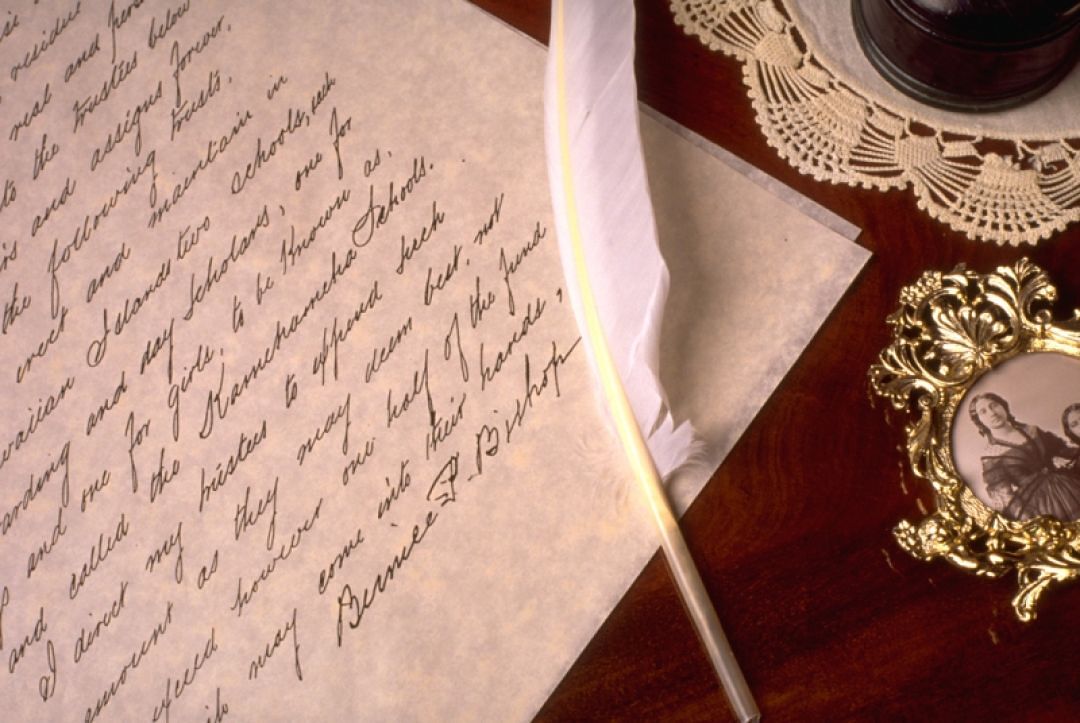 resident
real and personal
to the trustees below
and assigns forever,
the following trusts,
erect and maintain in
waiian Islands two schools, each
arding and day Scholars, one for
and one for girls, to be Known as,
and called the Kamehameha Schools.
I direct my trustees to expend such
amount as they may deem best, not
exceed however one half of the fund
may come into their hands,
Bernice P. Bishop